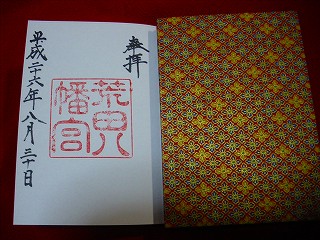 奉拝
荒田八
幡宮
平成二十六年八月三十日